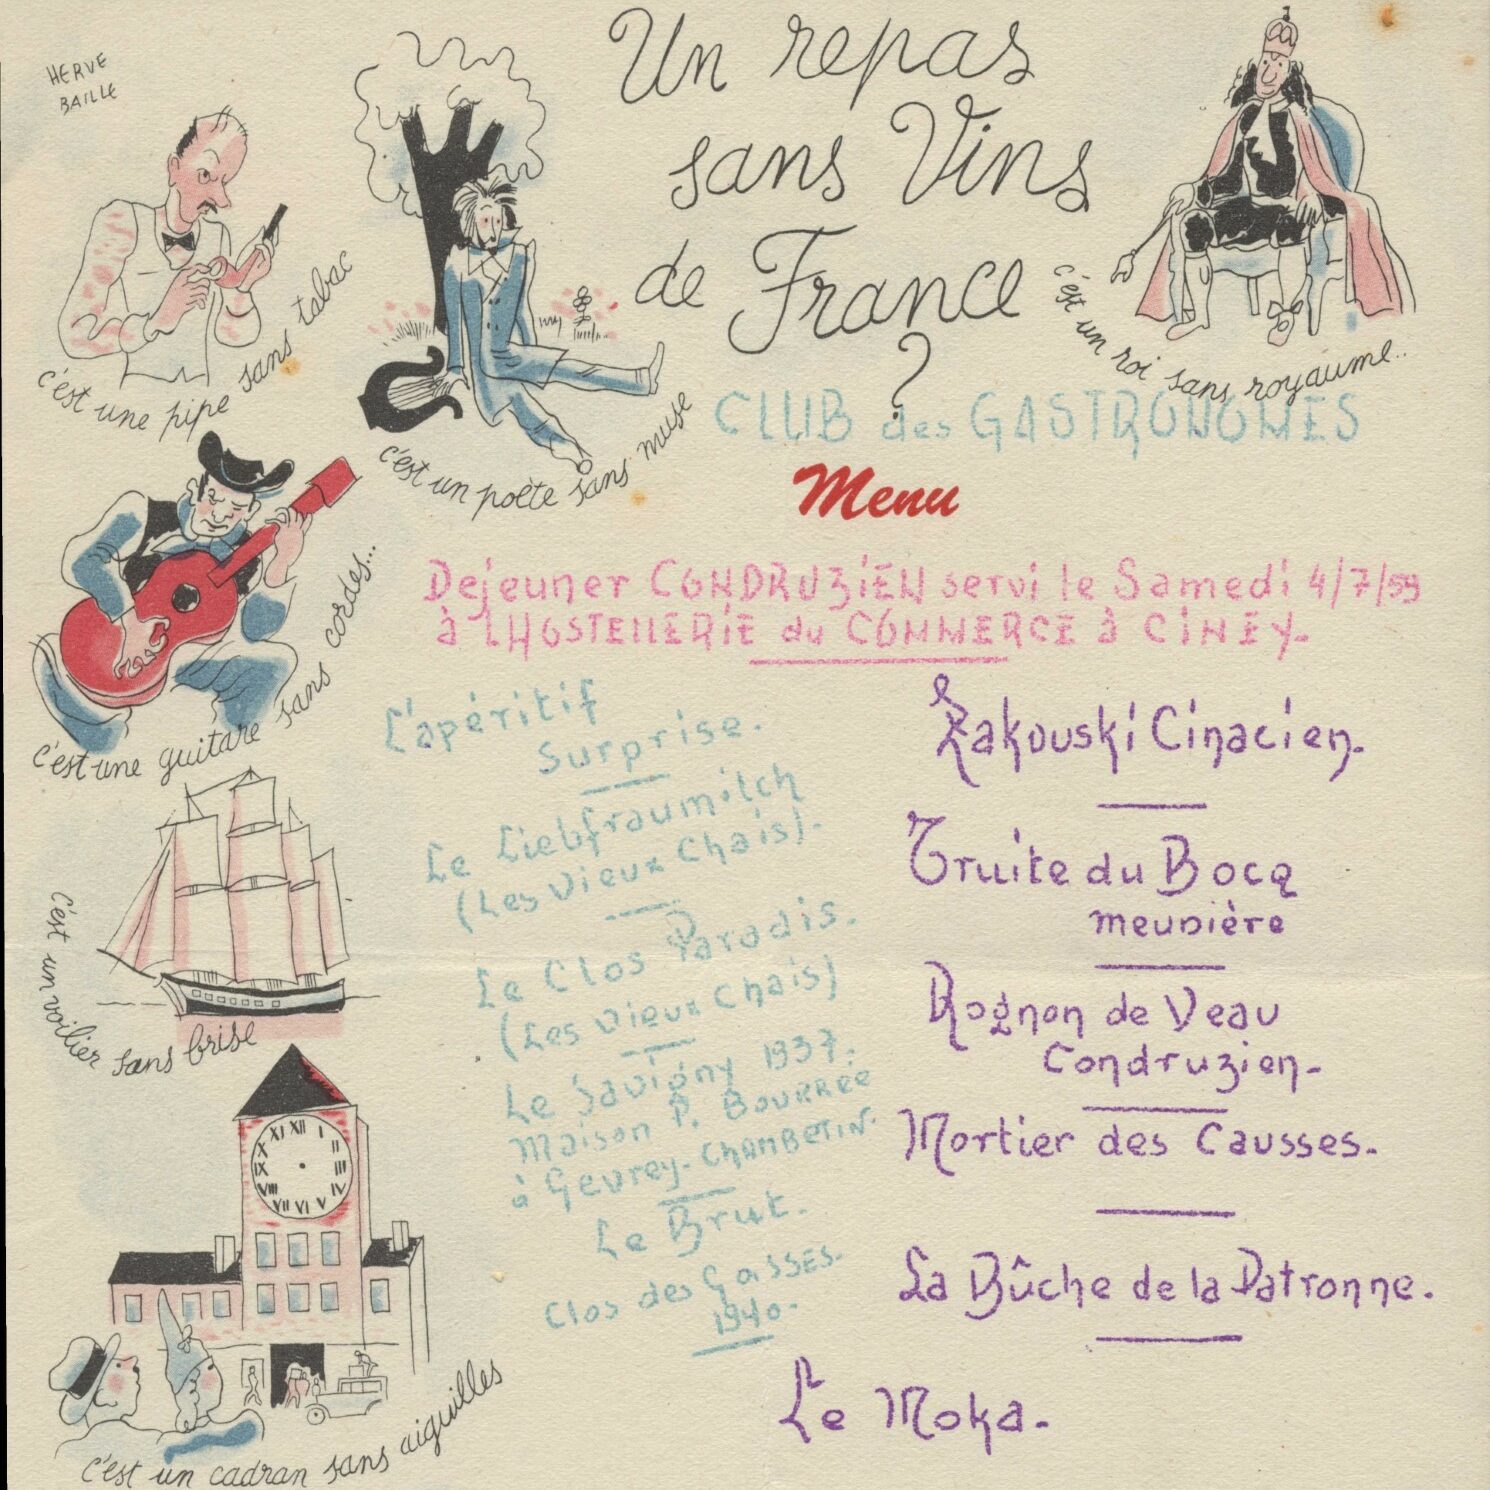 HERVE
BAILLE
Un repas
sans Vins
de France
?
c'est une pipe sans tabac
c'est un poète sans muse
c'est un roi sans royaume..
c'est une guitare sans cordes...
c'est un voilier sans brise
c'est un cadran sans aiguilles
XII I III IV V VI VII VIII IX X XI
CLUB des GASTRONOMES
Menu
Dejeuner CONDRUZiEN servi le Samedi 4/7/59
à LHOSTELLERiE du COMMERCE à CiNEY-
L'apéritif
Surprise.
Le Liebfraumilch
(Les Vieux Chais).
Le Clos Paradis.
(Les Vieux Chais)
Le Savigny 1937.
Maison P. BOURRÉE
à Gevrey-CHAMBETIN.
Le Brut.
Clos des Gasses.
1940.
Zakouski Cinacien.
Truite du Bocq
meunière
Rognon de Veau
Condruzien.
Mortier des Causses.
La Bûche de la Patronne.
Le Moka.